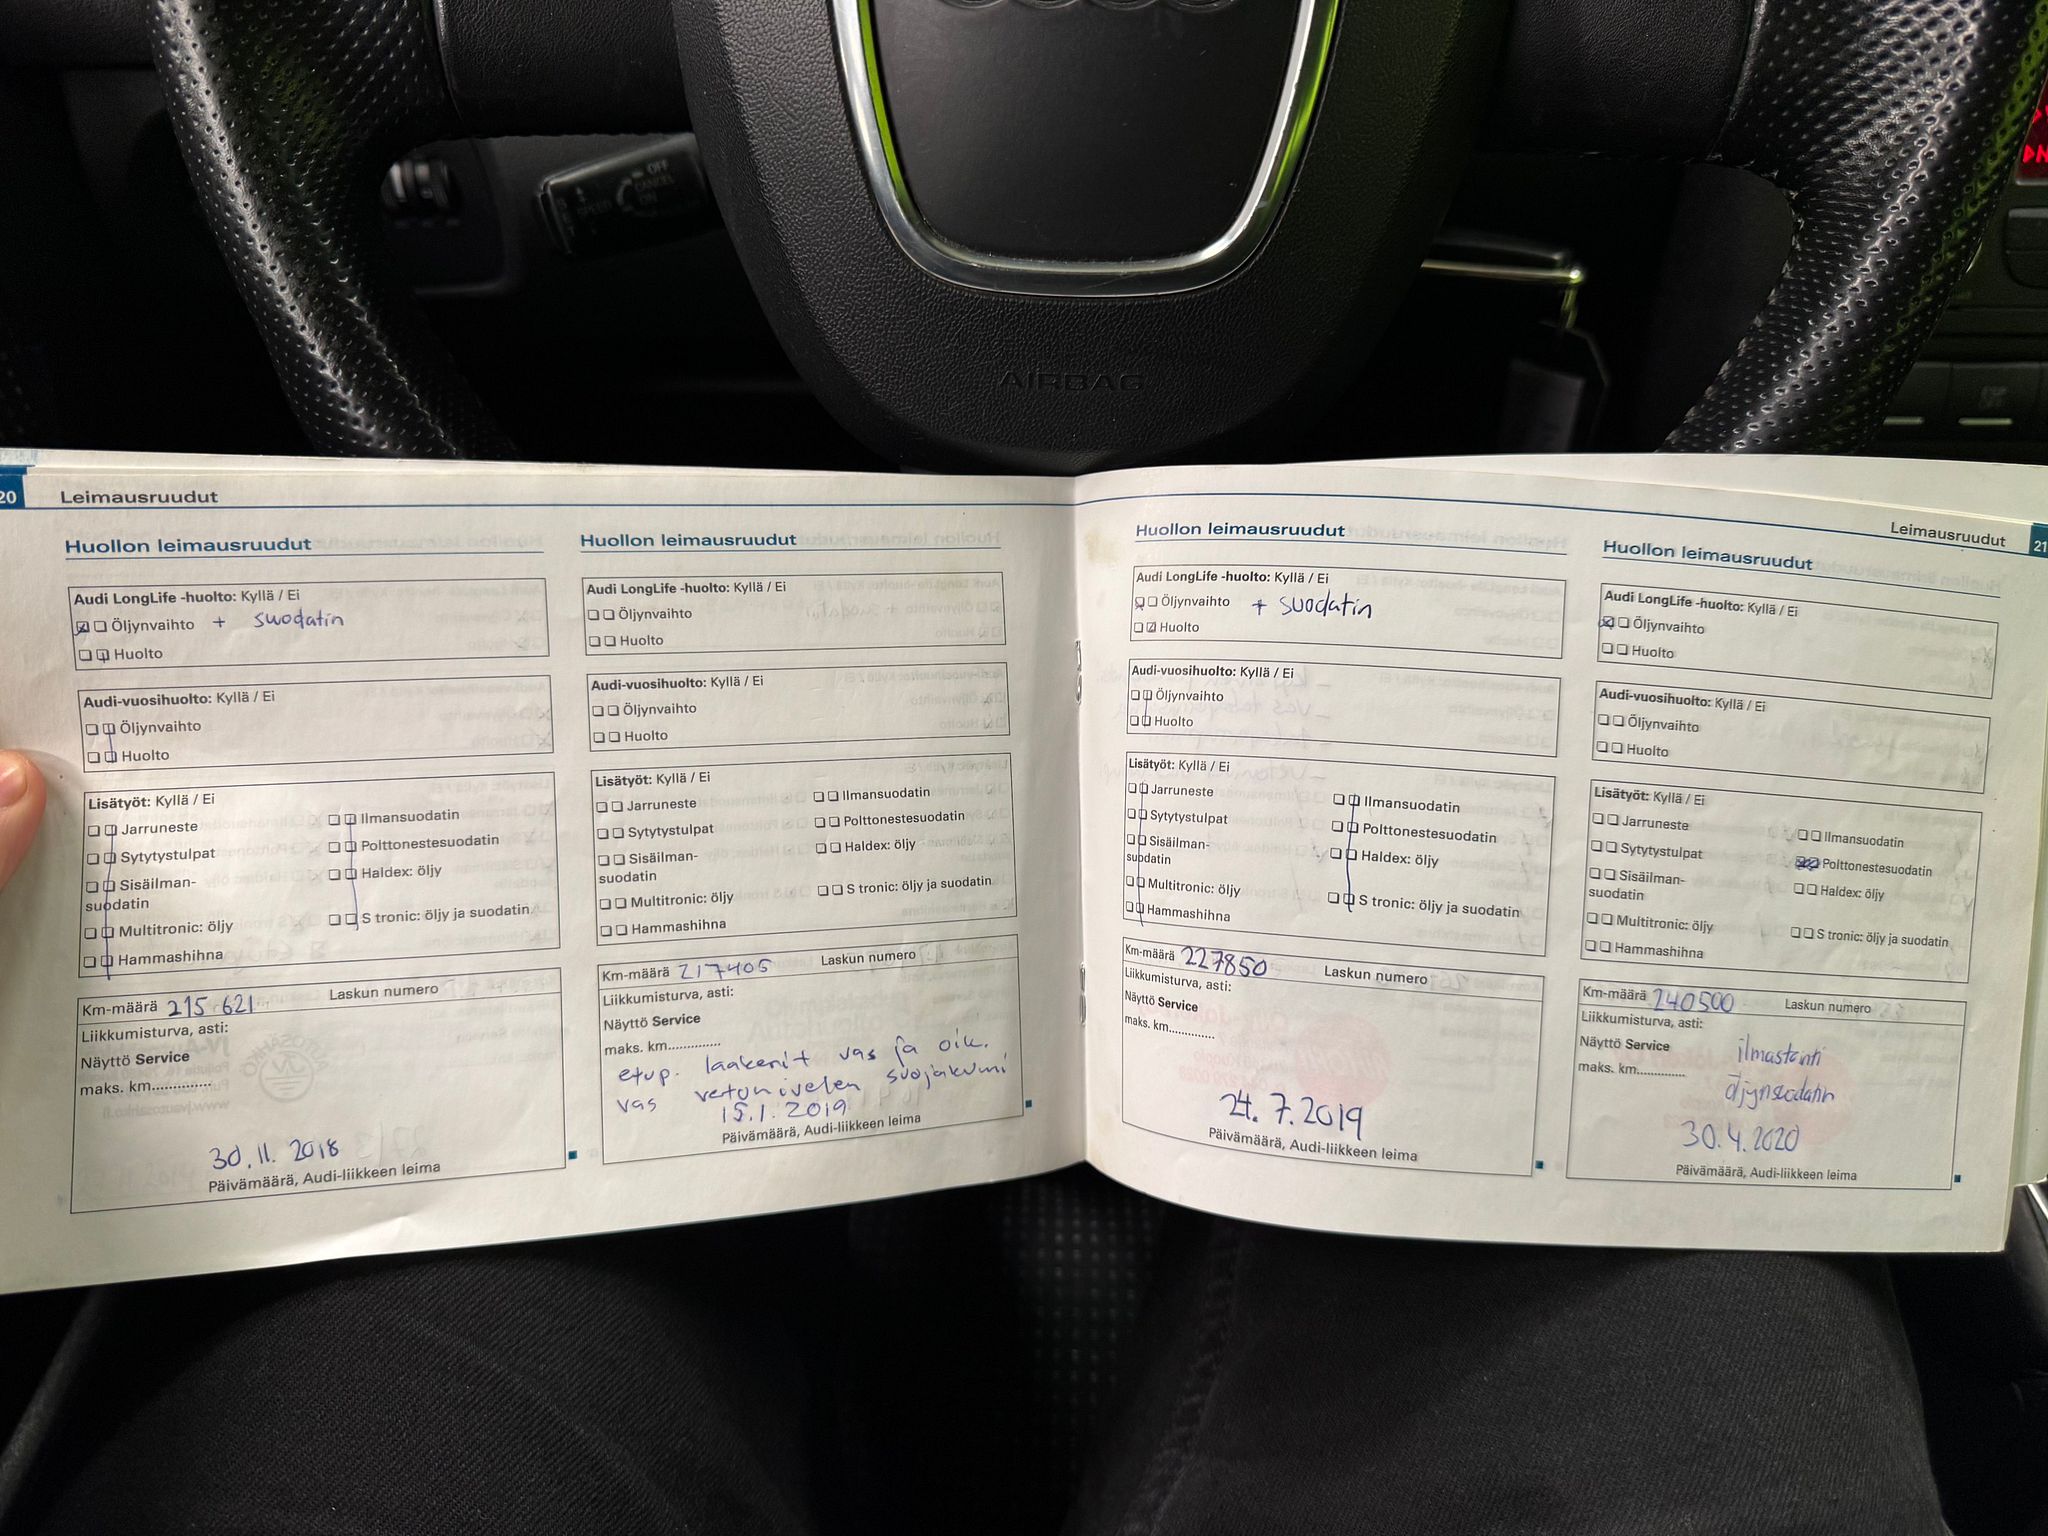 OFF
CANCEL
ON
SPEED
AIRBAG
20
Leimausruudut
Huollon leimausruudut
Audi LongLife -huolto: Kyllä / Ei
Öljynvaihto + suodatin
Huolto
Audi-vuosihuolto: Kyllä / Ei
Öljynvaihto
Huolto
Lisätyöt: Kyllä / Ei
Jarruneste
Sytytystulpat
Sisäilman-
suodatin
Multitronic: öljy
Hammashihna
Ilmansuodatin
Polttonestesuodatin
Haldex: öljy
S tronic: öljy ja suodatin
Km-määrä 215 621 Laskun numero
Liikkumisturva, asti:
Näyttö Service
maks. km..............
30.11. 2018
Päivämäärä, Audi-liikkeen leima
Huollon leimausruudut
Audi LongLife -huolto: Kyllä / Ei
Öljynvaihto
Huolto
Audi-vuosihuolto: Kyllä / Ei
Öljynvaihto
Huolto
Lisätyöt: Kyllä / Ei
Jarruneste
Sytytystulpat
Sisäilman-
suodatin
Multitronic: öljy
Hammashihna
Ilmansuodatin
Polttonestesuodatin
Haldex: öljy
S tronic: öljy ja suodatin
Km-määrä 217405 Laskun numero
Liikkumisturva, asti:
Näyttö Service
maks. km.............
etup. laakerit vas ja oik.
vas vetonivelen suojakumi
15.1.2019
Päivämäärä, Audi-liikkeen leima
Leimausruudut
21
Huollon leimausruudut
Audi LongLife -huolto: Kyllä / Ei
Öljynvaihto + suodatin
Huolto
Audi-vuosihuolto: Kyllä / Ei
Öljynvaihto
Huolto
Lisätyöt: Kyllä / Ei
Jarruneste
Sytytystulpat
Sisäilman-
suodatin
Multitronic: öljy
Hammashihna
Ilmansuodatin
Polttonestesuodatin
Haldex: öljy
S tronic: öljy ja suodatin
Km-määrä 227850 Laskun numero
Liikkumisturva, asti:
Näyttö Service
maks. km............
24.7.2019
Päivämäärä, Audi-liikkeen leima
Huollon leimausruudut
Audi LongLife -huolto: Kyllä / Ei
Öljynvaihto
Huolto
Audi-vuosihuolto: Kyllä / Ei
Öljynvaihto
Huolto
Lisätyöt: Kyllä / Ei
Jarruneste
Sytytystulpat
Sisäilman-
suodatin
Multitronic: öljy
Hammashihna
Ilmansuodatin
Polttonestesuodatin
Haldex: öljy
S tronic: öljy ja suodatin
Km-määrä 240500 Laskun numero
Liikkumisturva, asti:
Näyttö Service
maks. km.............
ilmastointi
öljynsuodatin
30.4.2020
Päivämäärä, Audi-liikkeen leima